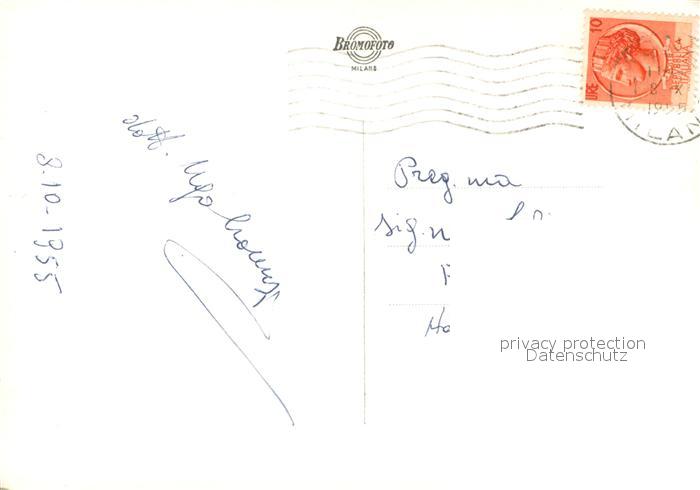 BROMOFOTO
MILANO
LIRE 10
REPUBBLICA
ITALIANA
8 X
1955
MILAN
dott. Ugo
8.10-1955
Preg.ma
Sig.n
privacy protection
Datenschutz